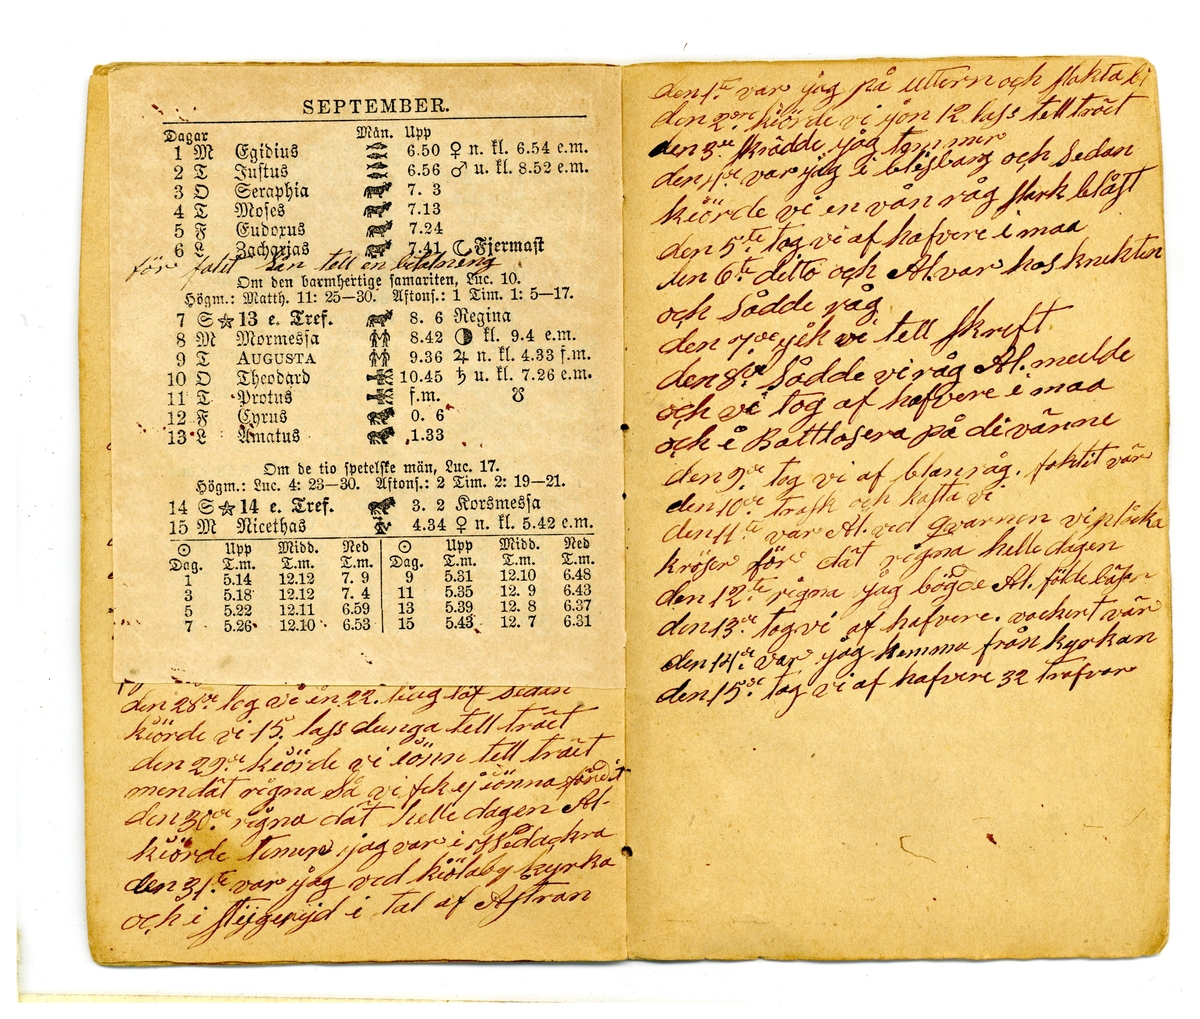 SEPTEMBER.
Dagar Mån. Upp
1 M Egidius 6.50 ♀ n. kl. 6.54 e.m.
2 T Justus 6.56 ♂ u. kl. 8.52 e.m.
3 O Seraphia 7. 3
4 T Moses 7.13
5 F Eudoxus 7.24
6 L Zacharias 7.41 ☾ Fjermast
för tell en
Om den barmhertige samariten, Luc. 10.
Högm.: Matth. 11: 25—30. Aftons.: 1 Tim. 1: 5—17.
7 S ☆ 13 e. Tref. 8. 6 Regina
8 M Mormessa 8.42 ◑ kl. 9.4 e.m.
9 T AUGUSTA 9.36 ♃ n. kl. 4.33 f.m.
10 O Theodard 10.45 ♄ u. kl. 7.26 e.m.
11 T Protus f.m. ☋
12 F Cyrus 0. 6
13 L Amatus 1.33
Om de tio spetelske män, Luc. 17.
Högm.: Luc. 4: 23—30. Aftons.: 2 Tim. 2: 19—21.
14 S ☆ 14 e. Tref. 3. 2 Korsmessa
15 M Nicethas 4.34 ♀ n. kl. 5.42 e.m.
☉ Upp Midd. Ned ☉ Upp Midd. Ned
Dag. T.m. T.m. T.m. Dag. T.m. T.m. T.m.
1 5.14 12.12 7. 9 9 5.31 12.10 6.48
3 5.18 12.12 7. 4 11 5.35 12. 9 6.43
5 5.22 12.11 6.59 13 5.39 12. 8 6.37
7 5.26 12.10 6.53 15 5.43 12. 7 6.31
den 28de tog vi en 22. af sedan
kiörde vi 15. lass dunga tell träet
den 29de kiörde vi iönn tell träet
men dät rigna så vi fck ej iönna
den 30de rigna dät helle dagen Al-
kiörde jag var i
den 31te var jag ved kiölaby kyrka
och i i tal af Astran
den 1te var jag på uttern och slakta
den 2dre kiörde vi jön 12 lass tell träet
den 3de skrädde jag temmer
den 4de var jag i och sedan
kiörde vi en vån råg stark blåst
den 5te tog vi af hafvere i maa
den 6te ditto och Al. var hos knekten
och sådde råg
den 7de gik vi tell skrift
den 8de sådde vi råg Al. mulde
och vi tog af hafvere i maa
och i på di vänne
den 9de tog vi af blanråg.
den 10de trosk och kasta vi
den 11te var Al. ved qvarnen vi plåcka
kröser för dät rigna helle dagen
den 12te rigna jag bögde Al.
den 13de tog vi af hafvere. vackert vär
den 14de var jag hemma från kyrkan
den 15de tog vi af hafvere 32 trafvar